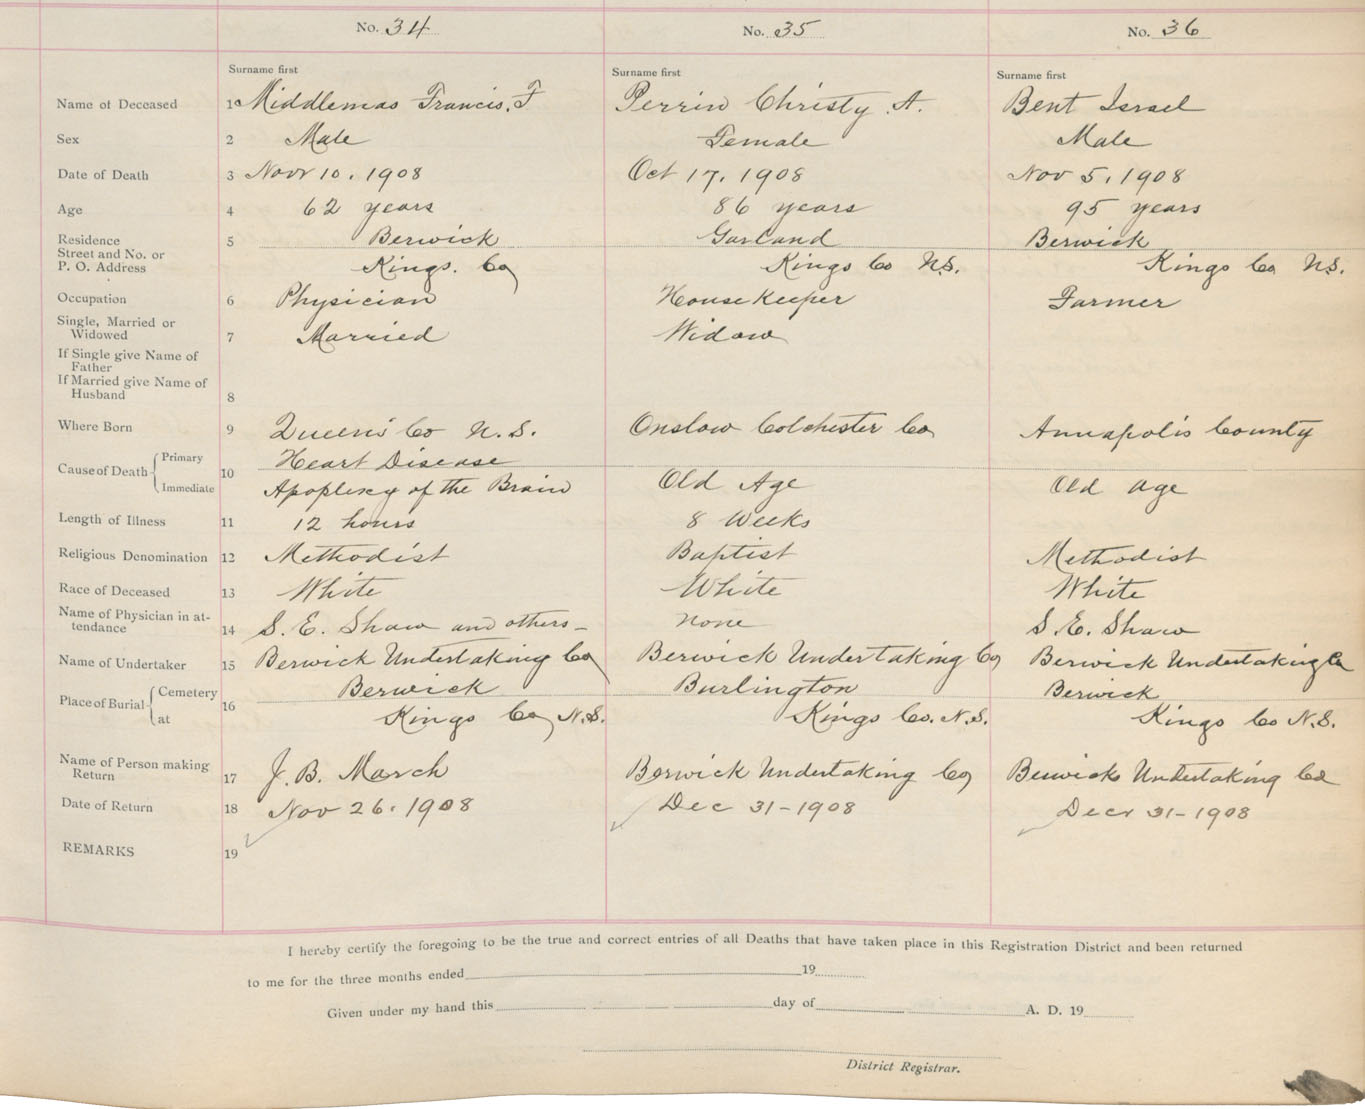 No. 34 No. 35 No. 36
Surname first Surname first Surname first
Name of Deceased 1 Middlemas Francis. F Perrin Christy A. Bent Israel
Sex 2 Male Female Male
Date of Death 3 Novr 10, 1908 Oct 17, 1908 Nov 5, 1908
Age 4 62 years 86 years 95 years
Residence 5 Berwick Garland Berwick
Street and No. or
P. O. Address Kings. Co Kings Co N.S. Kings Co N.S.
Occupation 6 Physician House Keeper Farmer
Single, Married or
Widowed 7 Married Widow
If Single give Name of
Father
If Married give Name of
Husband 8
Where Born 9 Queens Co N. S. Onslow Colchester Co Annapolis County
Cause of Death Primary 10 Heart Disease
Immediate Apoplexy of the Brain Old Age Old age
Length of Illness 11 12 hours 8 Weeks
Religious Denomination 12 Methodist Baptist Methodist
Race of Deceased 13 White White White
Name of Physician in at-
tendance 14 S. E. Shaw and others – none S. E. Shaw
Name of Undertaker 15 Berwick Undertaking Co Berwick Undertaking Co Berwick Undertaking Co
Place of Burial Cemetery 16 Berwick Burlington Berwick
at Kings Co N.S. Kings Co. N.S. Kings Co N.S.
Name of Person making
Return 17 J. B. March Berwick Undertaking Co Berwick Undertaking Co
Date of Return 18 Nov 26. 1908 Dec 31–1908 Decr 31–1908
REMARKS 19
I hereby certify the foregoing to be the true and correct entries of all Deaths that have taken place in this Registration District and been returned
to me for the three months ended 19
Given under my hand this day of A. D. 19
District Registrar.